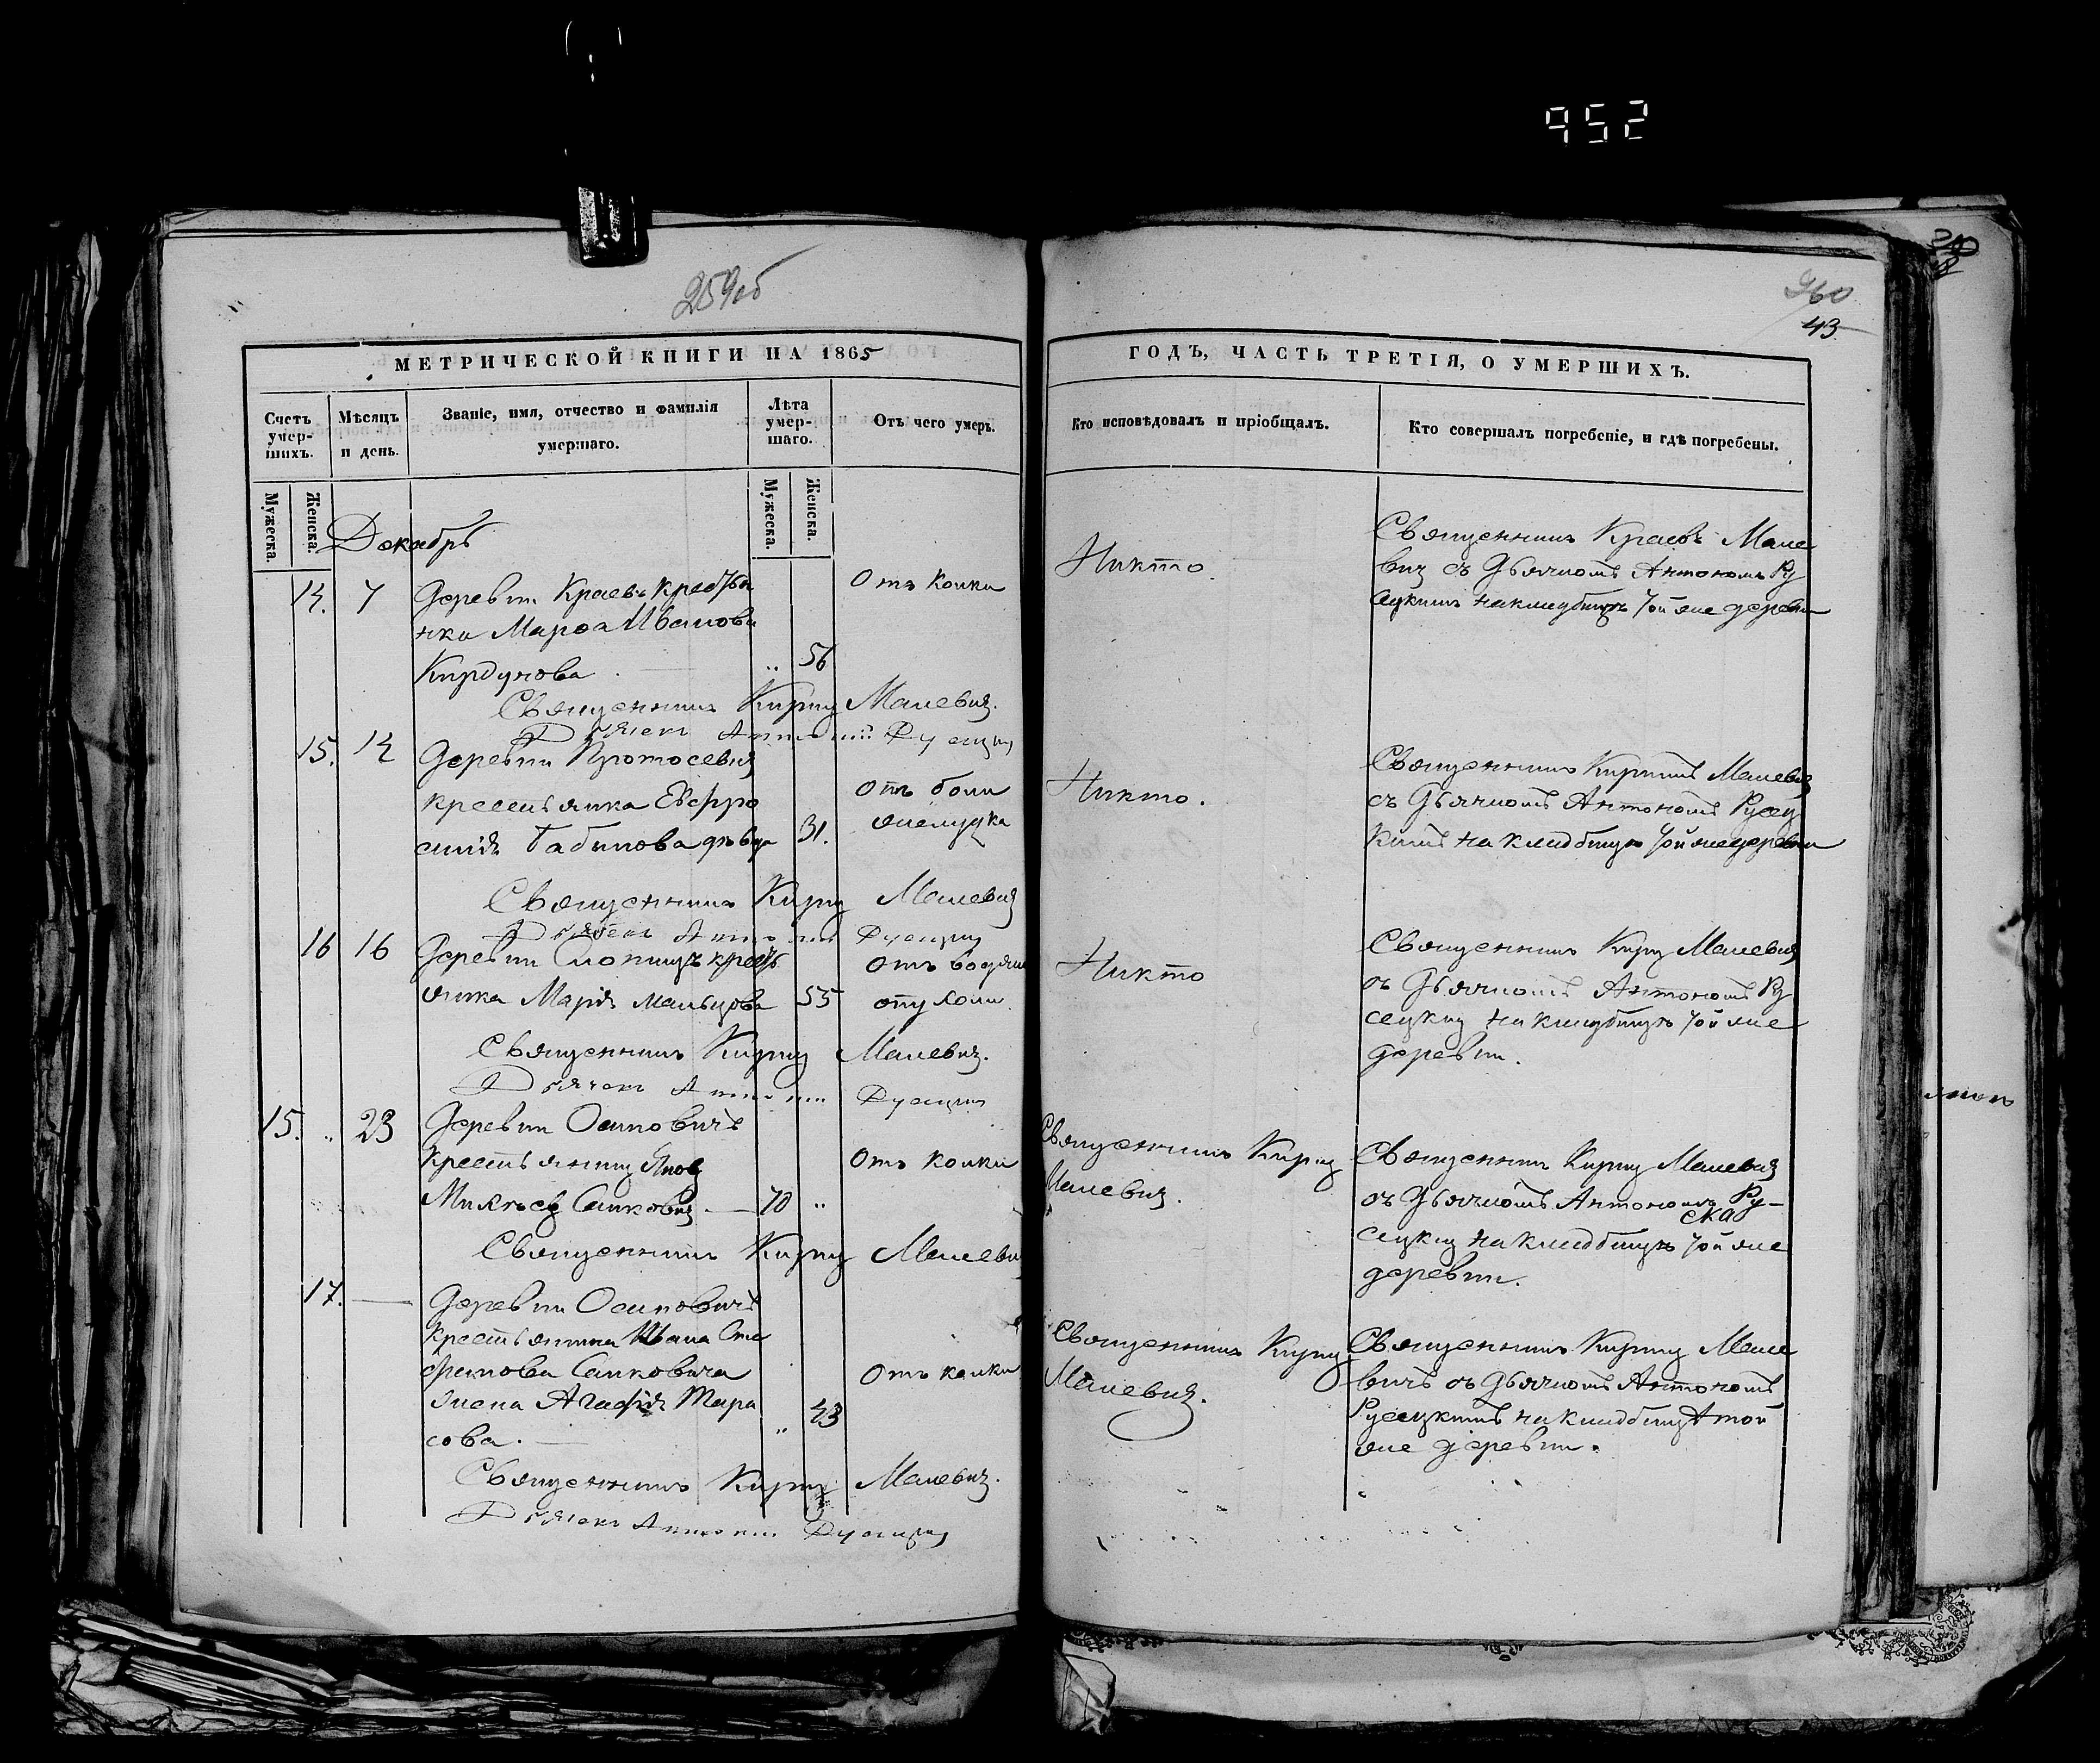 952
259об
260
43
МЕТРИЧЕСКОЙ КНИГИ НА 1865
ГОДЪ, ЧАСТЬ ТРЕТІЯ, О УМЕРШИХЪ.
Счетъ умер-шихъ.
Мѣсяцъ и день.
Званіе, имя, отчество и фамилія умершаго.
Лѣта умер-шаго.
Отъ чего умеръ.
Кто исповѣдовалъ и пріобщалъ.
Кто совершалъ погребеніе, и гдѣ погребены.
Мужеска.
Женска.
Мужеска.
Женска.
Декабрь
14. 7
Деревни Краевъ крестья
нка Марѳа Иванова
56
Отъ колки
Никто
Священникъ Мале
вич съ Дьячкомъ Антономъ Ру
сецкимъ на кладбищѣ той же деревни
Священникъ Кирил Малевич.
Дьячекъ Антоній Русецкій
15. 14
Деревни Протосевич
крестьянка Евфро
синія девица 31.
Отъ боли
желудка
Никто.
Священникъ Малевич
съ Дьячкомъ Антономъ Русец
кимъ на кладбищѣ той же деревни
Священникъ Кирил Малевич
Дьячекъ Антоній Русецкій
16 16
Деревни крестъ
янка Марія 55
Отъ водяной
опухоли
Никто
Священникъ Кирил Малевич
съ Дьячкомъ Антономъ Ру
сецким на кладбищѣ той же
деревни.
Священникъ Кирил Малевич.
Дьячекъ Антоній Русецкій
15. „ 23
Деревни Осиповичъ
крестьянин Яков
Санкович. — 70 „
Отъ колки
Священникъ Кирил
Малевич.
Священникъ Кирил Малевич
съ Дьячкомъ Антономъ Ру-
сецким на кладбищѣ той же
деревни.
Священникъ Кирил Малевич
17. —
Деревни Осиповичъ
крестьянина Ивана Сте
фанова Санковича
жена Агафія Тара
сова. — „ 43
Отъ колки
Священникъ Кирил
Малевич.
Священникъ Кирил Мале
вичъ съ Дьячкомъ Антономъ
Русецкимъ на кладбищѣ той
же деревни.
Священникъ Кирил Малевич.
Дьячекъ Антоній Русецкій